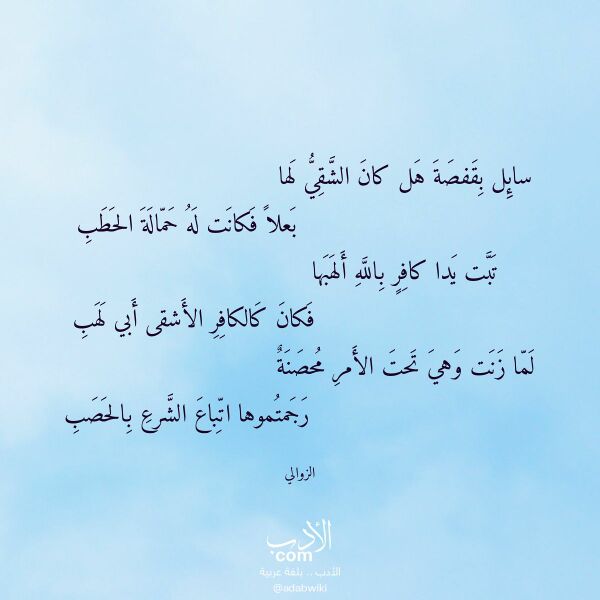 سائِل بِقَفصَةَ هَل كانَ الشَّقِيُّ لَها
بَعلاً فَكانَت لَهُ حَمّالَةَ الحَطَبِ
تَبَّت يَدا كافِرٍ بِاللَّهِ أَلهَبَها
فَكانَ كَالكافِرِ الأَشقى أَبي لَهَبِ
لَمّا زَنَت وَهيَ تَحتَ الأَمرِ مُحصَنَةٌ
رَجَمتُموها اتِّباعَ الشَّرعِ بِالحَصَبِ
الزوالي
الأدب
com
الأدب .. بلغة عربية
@adabwiki